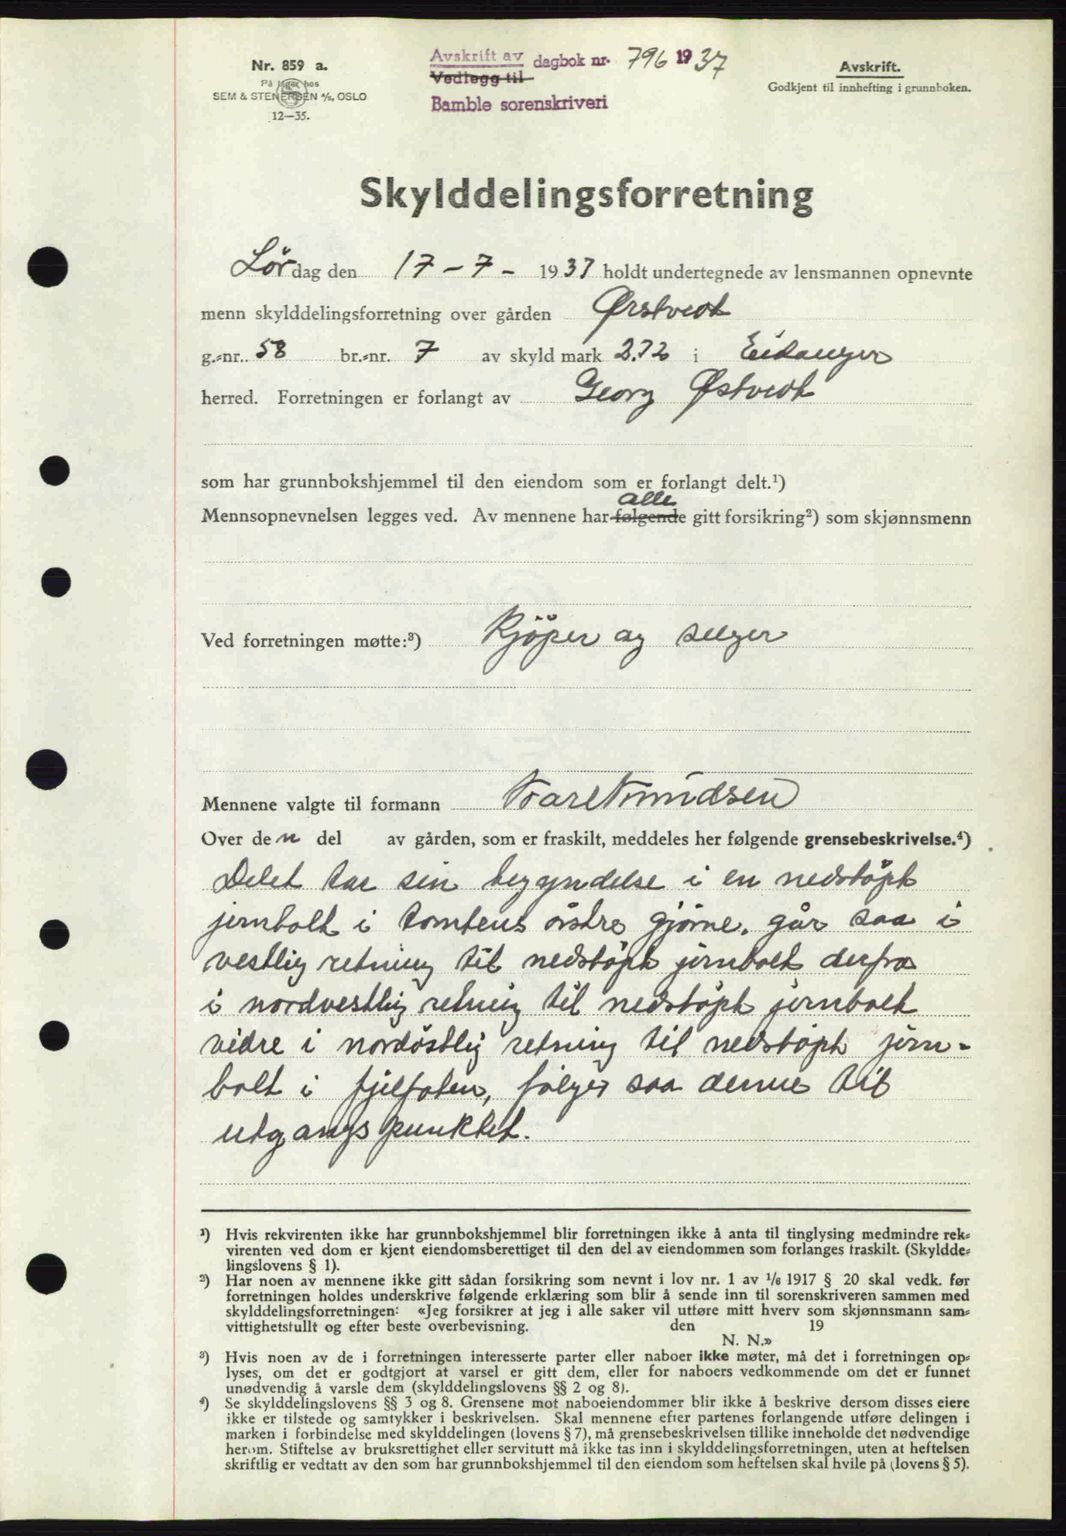 Nr. 859 a.
På lager hos
SEM & STENERSEN A/S, OSLO
12—35.
Avskrift av
Vedlegg til
dagbok nr. 796 1937
Bamble sorenskriveri
Avskrift.
Godkjent til innhefting i grunnboken.
Skylddelingsforretning
Lørdag den 17 - 7 - 1937 holdt undertegnede av lensmannen opnevnte
menn skylddelingsforretning over gården Ørstvedt
g.=nr. 58 br.=nr. 7 av skyld mark 2.72 i Eidanger
herred. Forretningen er forlangt av Georg Østvedt
som har grunnbokshjemmel til den eiendom som er forlangt delt.¹)
alle
Mennsopnevnelsen legges ved. Av mennene har følgende gitt forsikring²) som skjønnsmenn
Ved forretningen møtte:³) Kjöper og selger
Mennene valgte til formann
Over den del av gården, som er fraskilt, meddeles her følgende grensebeskrivelse.⁴)
Delet tar sin begyndelse i en nedstöpt
jernbolt i tomtens östre hjørne, går saa i
vestlig retning til nedstöpt jernbolt derfra
i nordvestlig retning til nedstöpt jernbolt
vidre i nordöstlig retning til nedstöpt jern-
bolt i fjellfoten, fölger saa denne til
utgangspunktet.
¹) Hvis rekvirenten ikke har grunnbokshjemmel blir forretningen ikke å anta til tinglysing medmindre rek=
virenten ved dom er kjent eiendomsberettiget til den del av eiendommen som forlanges fraskilt. (Skyldde=
lingslovens § 1).
²) Har noen av mennene ikke gitt sådan forsikring som nevnt i lov nr. 1 av 1/6 1917 § 20 skal vedk. før
forretningen holdes underskrive følgende erklæring som blir å sende inn til sorenskriveren sammen med
skylddelingsforretningen: «Jeg forsikrer at jeg i alle saker vil utføre mitt hverv som skjønnsmann sam=
vittighetsfullt og efter beste overbevisning. den 19
N. N.»
³) Hvis noen av de i forretningen interesserte parter eller naboer ikke møter, må det i forretningen op=
lyses, om det er godtgjort at varsel er gitt dem, eller for naboers vedkommende om det er funnet
unødvendig å varsle dem (skylddelingslovens §§ 2 og 8).
⁴) Se skylddelingslovens §§ 3 og 8. Grensene mot naboeiendommer blir ikke å beskrive dersom disses eiere
ikke er tilstede og samtykker i beskrivelsen. Skal mennene efter partenes forlangende utføre delingen i
marken i forbindelse med skylddelingen (lovens § 7), må grensebeskrivelsen tillike inneholde det nødvendige
herom. Stiftelse av bruksrettighet eller servitutt må ikke tas inn i skylddelingsforretningen, uten at heftelsen
skriftlig er vedtatt av den som har grunnbokshjemmel til den eiendom som heftelsen skal hvile på (lovens § 5).